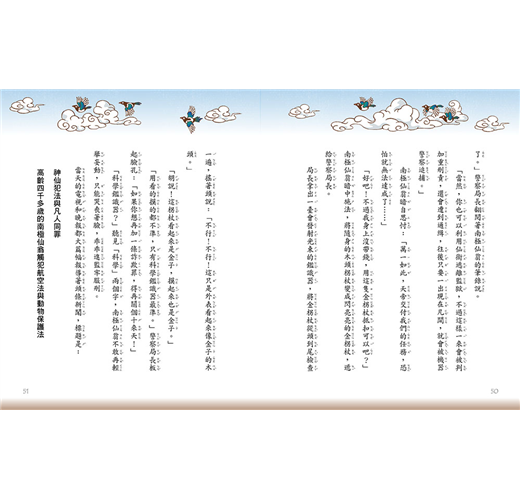 了。」警察局長翻閱著南極仙翁的筆錄說。
「當然,你也可以利用仙術逃離監獄,不過這樣一來會被判
加重刑責,還會遭到通緝,往後只要一出現在凡間,就會被機器
警察追捕。」
南極仙翁暗自思忖:「萬一如此,天帝交付我們的任務,恐
怕就無法達成了……」
「好吧!不過我身上沒帶錢,用這隻金拐杖抵扣可以吧?」
南極仙翁暗中施法,將隨身的木頭拐杖變成閃亮亮的金拐杖,遞
給警察局長。
局長拿出一臺會發射光束的鑑識器,將金拐杖從頭到尾檢查
50
一遍,搖著頭說:「不行!不行!這只是外表看起來像金子的木
頭。」
「明說!這拐杖看起來是金子,摸起來也是金子。」
「用看的摸的都不準,只有科學鑑識器最準。」警察局長板
起臉孔:「如果你想再加一條詐欺罪,得再關個十來天!」
「科學鑑識器?」聽見「科學」兩個字,南極仙翁不敢再輕
舉妄動,只能哭喪著臉,乖乖進監牢服刑。
當天的電視和晚報都大篇幅報導著頭條新聞,標題是:
神仙犯法與凡人同罪
高齡四千多歲的南極仙翁觸犯航空法與動物保護法
51